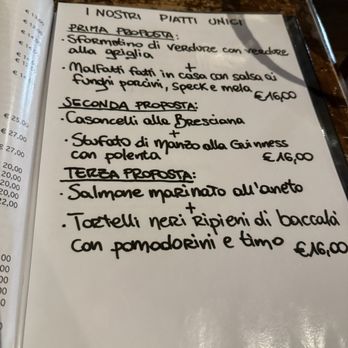 I NOSTRI PIATTI UNICI
PRIMA PROPOSTA:
• Sformatino di verdure con verdure
alla griglia
+
• Malfatti fatti in casa con salsa ai
funghi porcini, speck e mela
€16,00
SECONDA PROPOSTA:
• Casoncelli alla Bresciana
+
• Stufato di Manzo alla Guinness
con polenta €16,00
TERZA PROPOSTA:
• Salmone marinato all'aneto
+
• Tortelli neri ripieni di baccalà
con pomodorini e timo €16,00
€ 25,00
€ 27,00
27,00
20,00
20,00
20,00
22,00